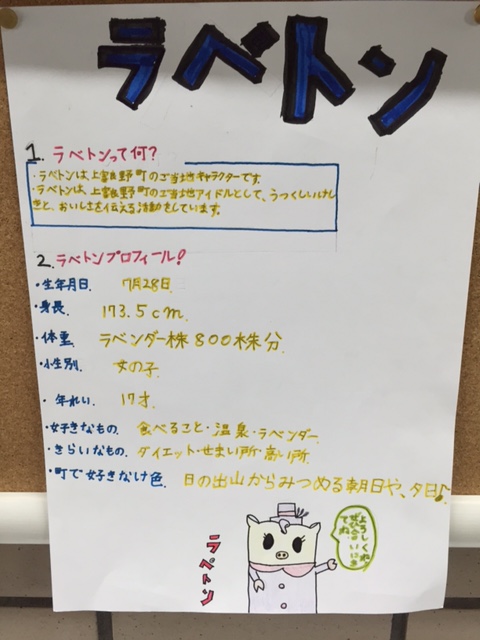 ラベトン
1. ラベトンって何?
・ラベトンは、上富良野町のご当地キャラクターです。
・ラベトンは、上富良野町のご当地アイドルとして、うつくしいけし
きと、おいしさを伝える活動をしています。
2. ラベトンプロフィール!
・生年月日 7月28日
・身長 173.5cm
・体重 ラベンダー株800株分
・性別 女の子
・年れい 17才
・好きなもの 食べること・温泉・ラベンダー
・きらいなもの ダイエット・せまい所・高い所
・町で好きなけ色 日の出山からみつめる朝日や、夕日♪
ラベトン
よろしくね
ぜひ会いにき
てね